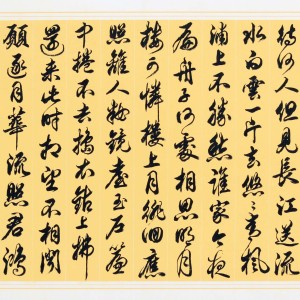 待何人但見長江送流
水白雲一片去悠悠青楓
浦上不勝愁誰家今夜
扁舟子何處相思明月
樓可憐樓上月徘徊應
照離人妝鏡臺玉戶簾
中捲不去搗衣砧上拂
還來此時相望不相聞
願逐月華流照君鴻